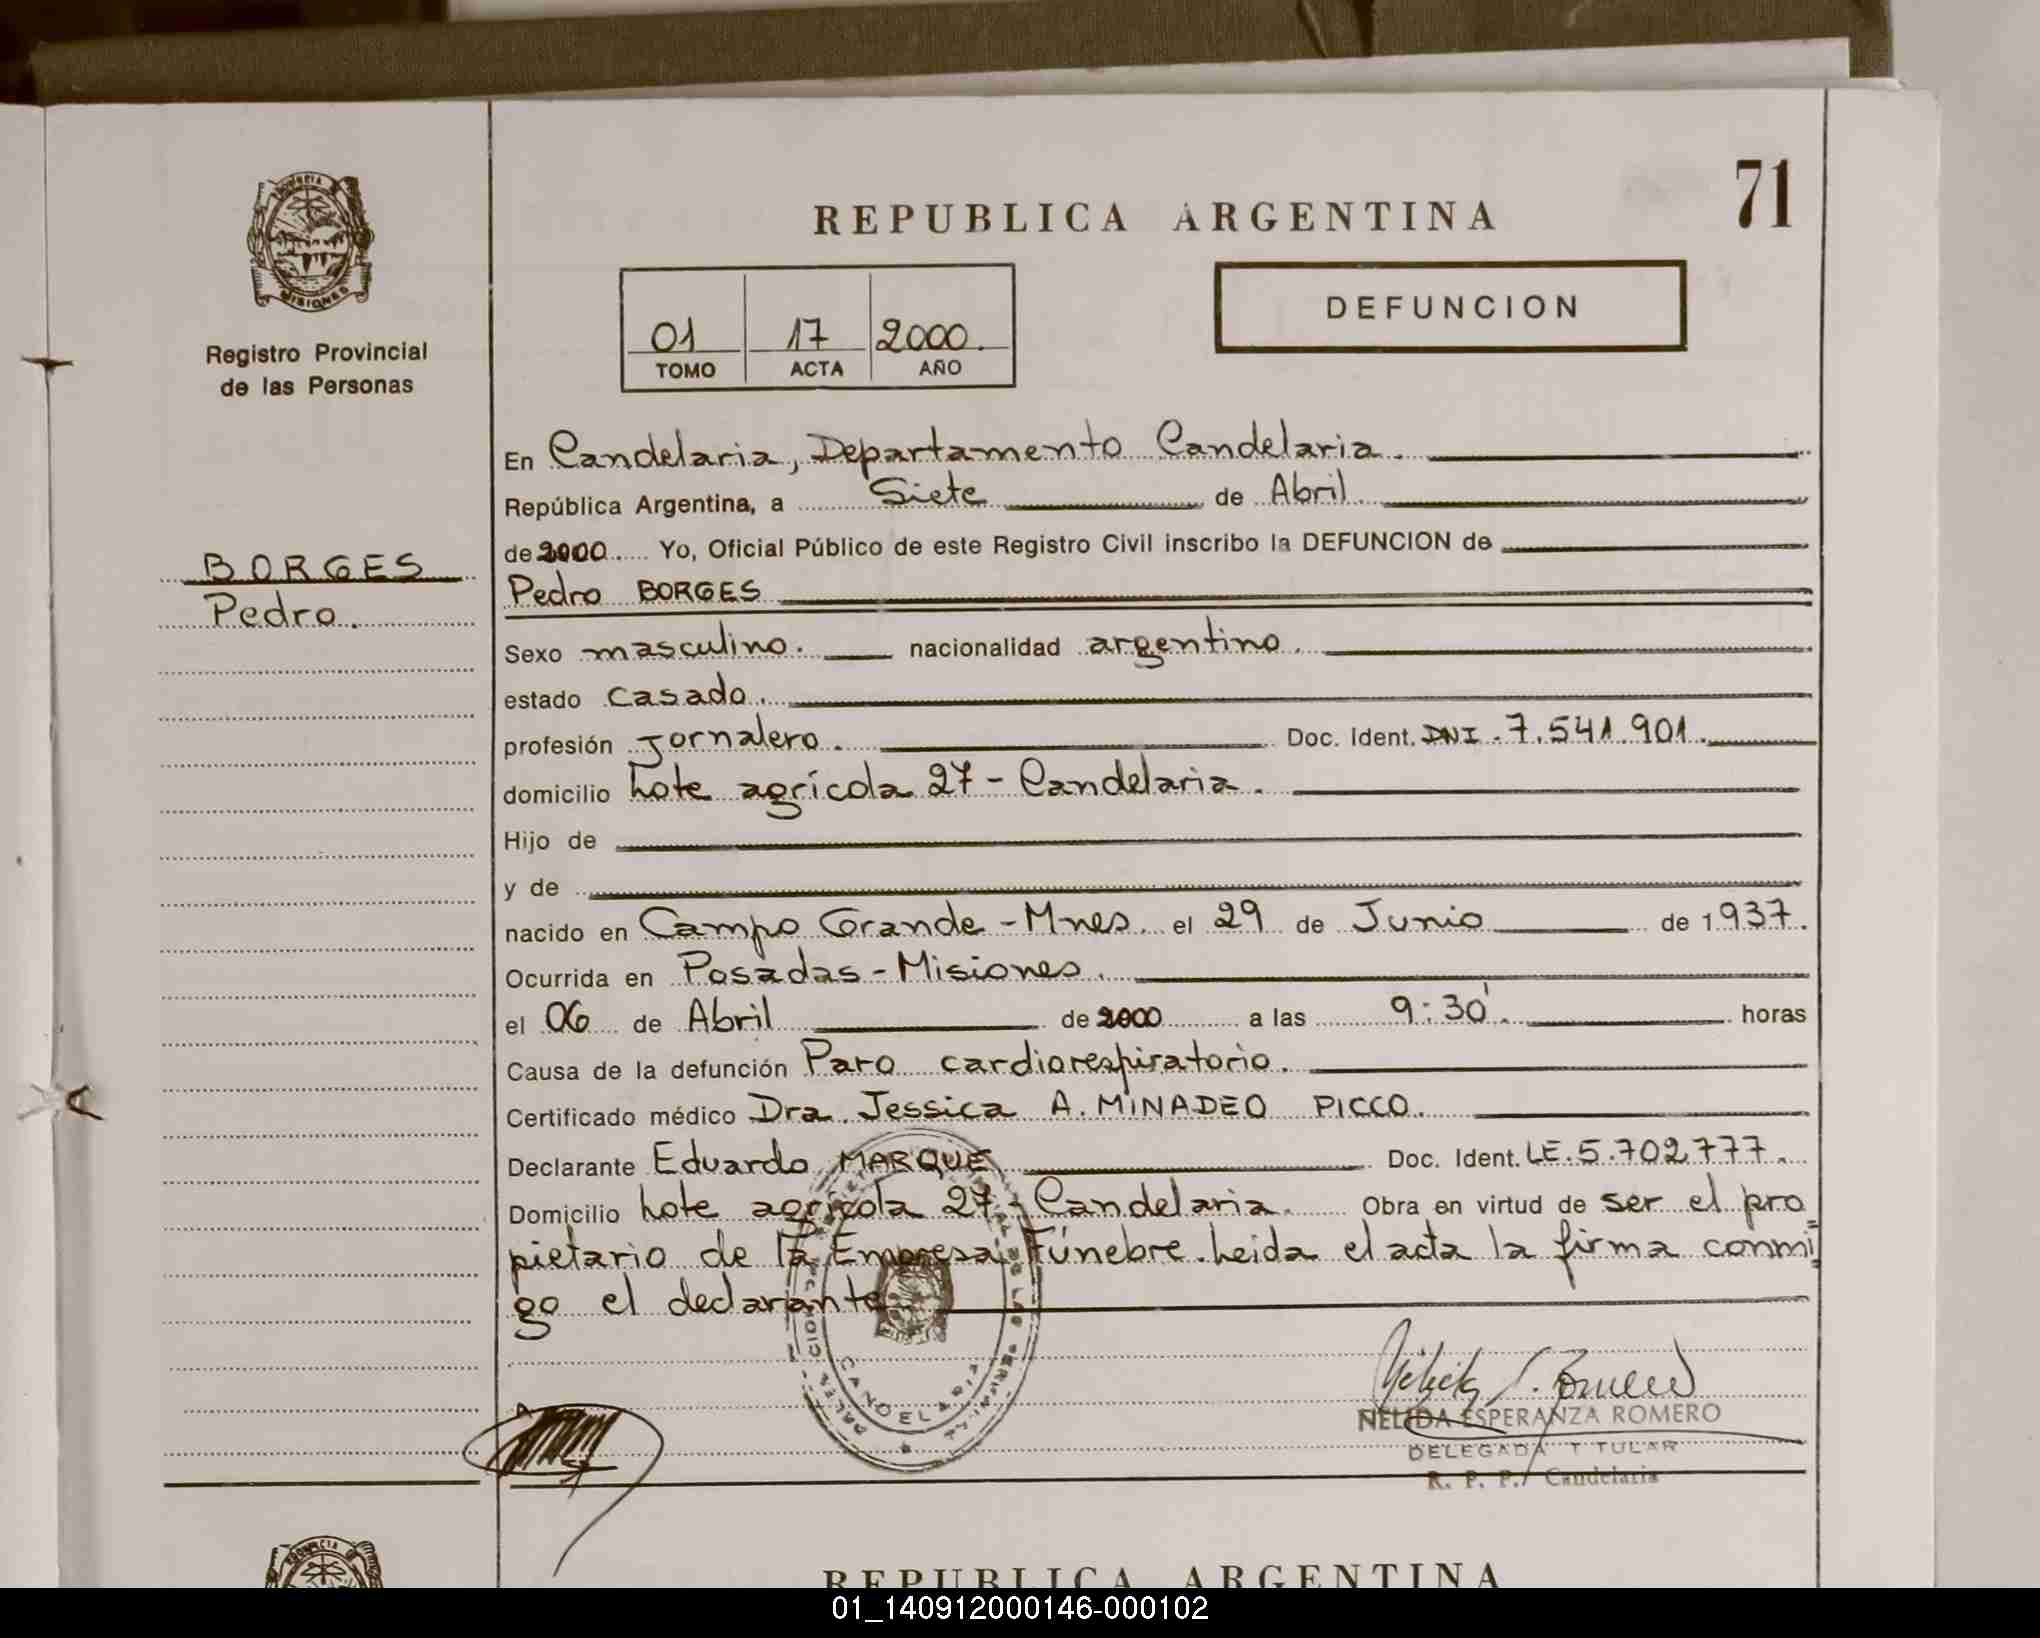 71
REPUBLICA ARGENTINA
PROVINCIA DE
MISIONES
Registro Provincial
de las Personas
01 17 2000.
TOMO ACTA AÑO
DEFUNCION
En Candelaria, Departamento Candelaria.
República Argentina, a Siete de Abril
de 2000 Yo, Oficial Público de este Registro Civil inscribo la DEFUNCION de
BORGES
Pedro.
Pedro BORGES
Sexo masculino. nacionalidad argentino.
estado casado.
profesión Jornalero. Doc. Ident. DNI. 7.541.901.
domicilio Lote agrícola 27 - Candelaria.
Hijo de
y de
nacido en Campo Grande - Mnes. el 29 de Junio de 1937.
Ocurrida en Posadas - Misiones.
el 06 de Abril de 2000 a las 9:30'. horas
Causa de la defunción Paro cardiorespiratorio.
Certificado médico Dra. Jessica A. MINADEO PICCO.
Declarante Eduardo MARQUE Doc. Ident. LE. 5.702777.
Domicilio Lote agrícola 27 - Candelaria. Obra en virtud de ser el pro=
pietario de la Empresa Fúnebre. Leida el acta la firma conmi=
go el declarante
CANDELARIA
NELIDA ESPERANZA ROMERO
DELEGADA TITULAR
R. P. P. Candelaria
REPUBLICA ARGENTINA
01_140912000146-000102